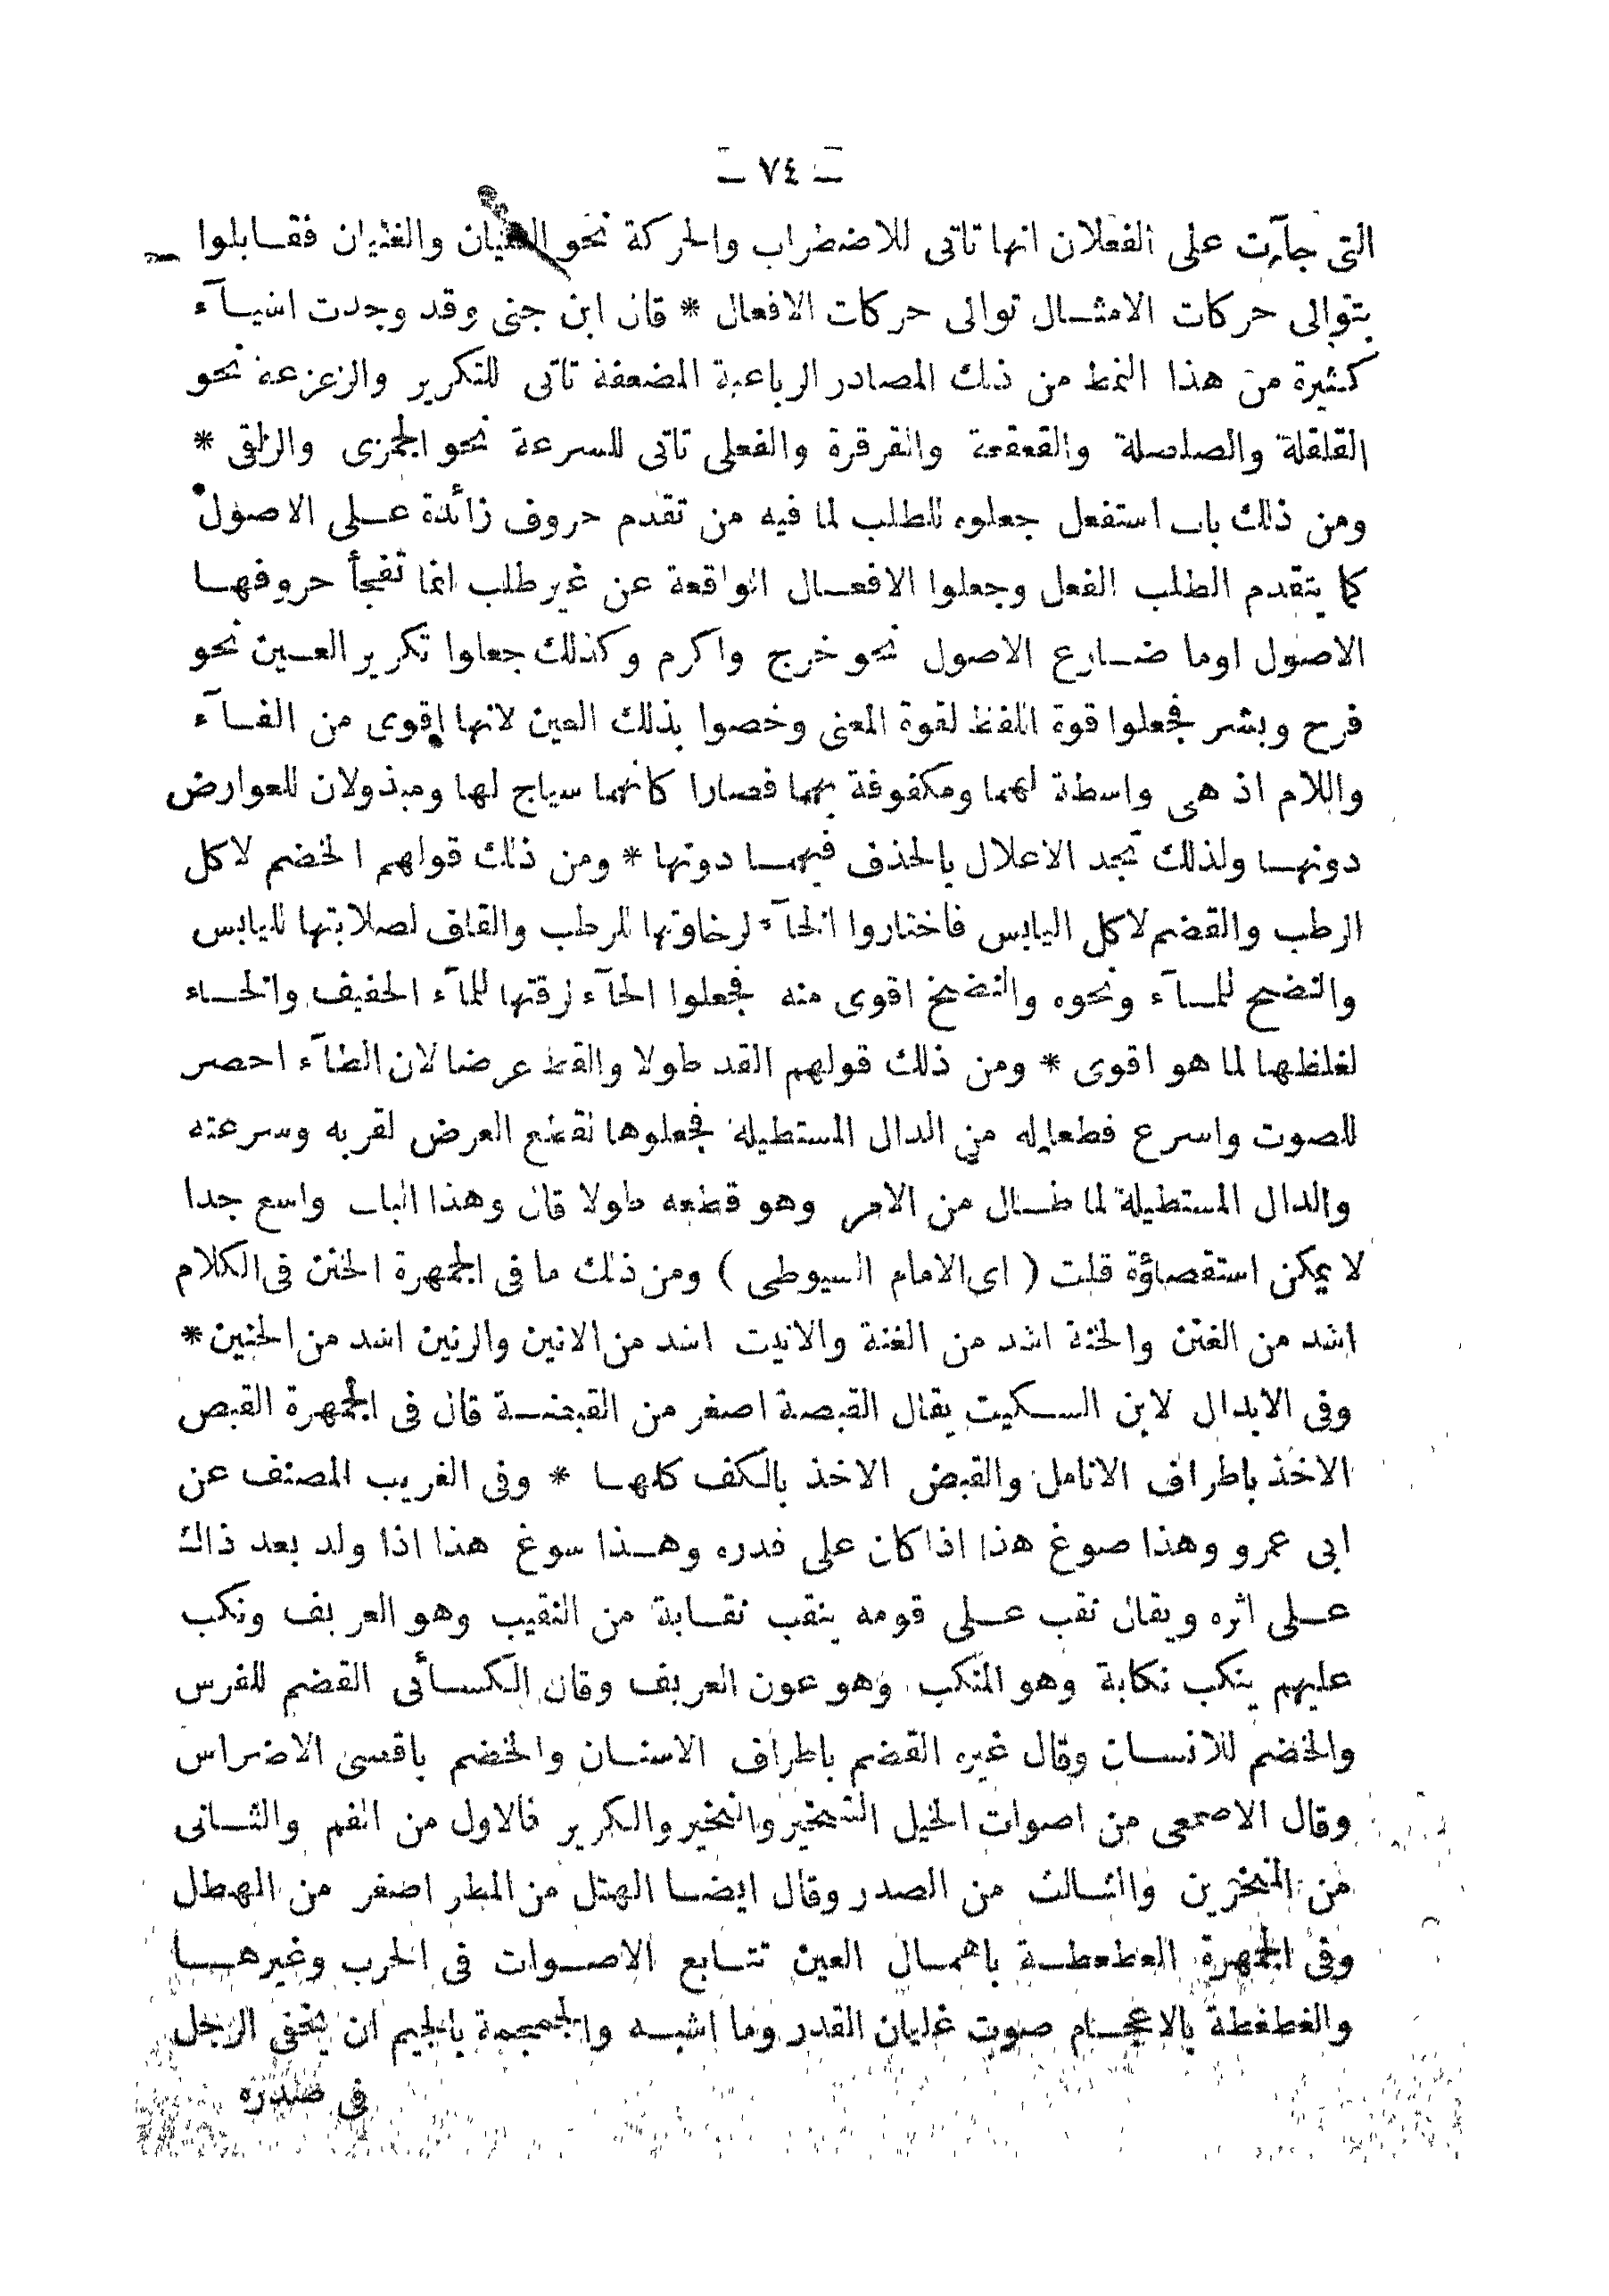 ـ ٧٤ ـ
التى جآءت على الفعلان انها تاتى للاضطراب والحركة نحو الغليان والغثيان فقابلوا
بتوالى حركات الامثال توالى حركات الافعال * قال ابن جنى وقد وجدت اشيآء
كثيرة من هذا النمط من ذلك المصادر الرباعية المضعفة تاتى للتكرير والزعزعة نحو
القلقلة والصلصلة والقعقعة والقرقرة والفعلى تاتى للسرعة نحو الجمزى والزلقى *
ومن ذلك باب استفعل جعلوه للطلب لما فيه من تقدم حروف زائدة على الاصول
كما يتقدم الطلب الفعل وجعلوا الافعال الواقعة عن غير طلب انما تفجأ حروفها
الاصول اوما ضارع الاصول نحو خرج واكرم وكذلك جعلوا تكرير العين نحو
فرح وبشر فجعلوا قوة اللفظ لقوة المعنى وخصوا بذلك العين لانها اقوى من الفآء
واللام اذ هى واسطة لهما ومكفوفة بهما فصارا كانهما سياج لها ومبذولان للعوارض
دونها ولذلك تجد الاعلال بالحذف فيهما دونها * ومن ذلك قولهم الخضم لاكل
الرطب والقضم لاكل اليابس فاختاروا الخآء لرخاوتها للرطب والقاف لصلابتها لليابس
والنضح للمآء ونحوه والنضخ اقوى منه فجعلوا الحآء لرقتها للمآء الخفيف والخاء
لغلظها لما هو اقوى * ومن ذلك قولهم القد طولا والقط عرضا لان الطآء احصر
للصوت واسرع قطعا له من الدال المستطيلة فجعلوها لقطع العرض لقربه وسرعته
والدال المستطيلة لما طال من الامر وهو قطعه طولا قال وهذا الباب واسع جدا
لا يمكن استقصاؤة قلت ( اى الامام السيوطى ) ومن ذلك ما فى الجمهرة الخنن فى الكلام
اشد من الغنن والخنة اشد من الغنة والانيت اشد من الانين والرنين اشد من الحنين *
وفى الابدال لابن السكيت يقال القبصة اصغر من القبضة قال فى الجمهرة القبص
الاخذ باطراف الانامل والقبض الاخذ بالكف كلها * وفى الغريب المصنف عن
ابى عمرو وهذا صوغ هذا اذا كان على قدره وهذا سوغ هذا اذا ولد بعد ذاك
على اثره ويقال نقب على قومه ينقب نقابة من النقيب وهو العريف ونكب
عليهم ينكب نكابة وهو المنكب وهو عون العريف وقال الكسائى القضم للفرس
والخضم للانسان وقال غيره القضم باطراف الاسنان والخضم باقصى الاضراس
وقال الاصمعى من اصوات الخيل الشخير والنخير والكرير فالاول من الفم والثانى
من المنخرين والثالث من الصدر وقال ايضا الهتل من المطر اصغر من الهطل
وفى الجمهرة العطعطة باهمال العين تتابع الاصوات فى الحرب وغيرها
والغطغطة بالاعجام صوت غليان القدر وما اشبه والجمجمة بالجيم ان يخفى الرجل
فى صدره